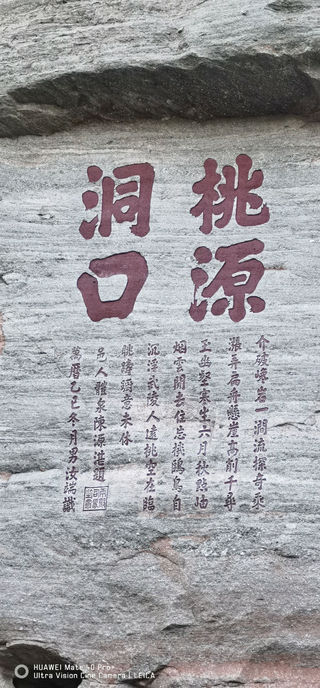 桃源
洞口
介破峰岩一澗流探奇乘
漲弄扁舟懸崖高削千尋
玉幽壑寒生六月秋點岫
烟雲閒去住忘機鷗鳥自
沉浮武陵人遠桃空在臨
眺躊躇意未休
邑人雅泉陳源湛題
萬曆乙巳冬月男汝端識
HUAWEI Mate 40 Pro+
Ultra Vision Cine Camera | LEICA